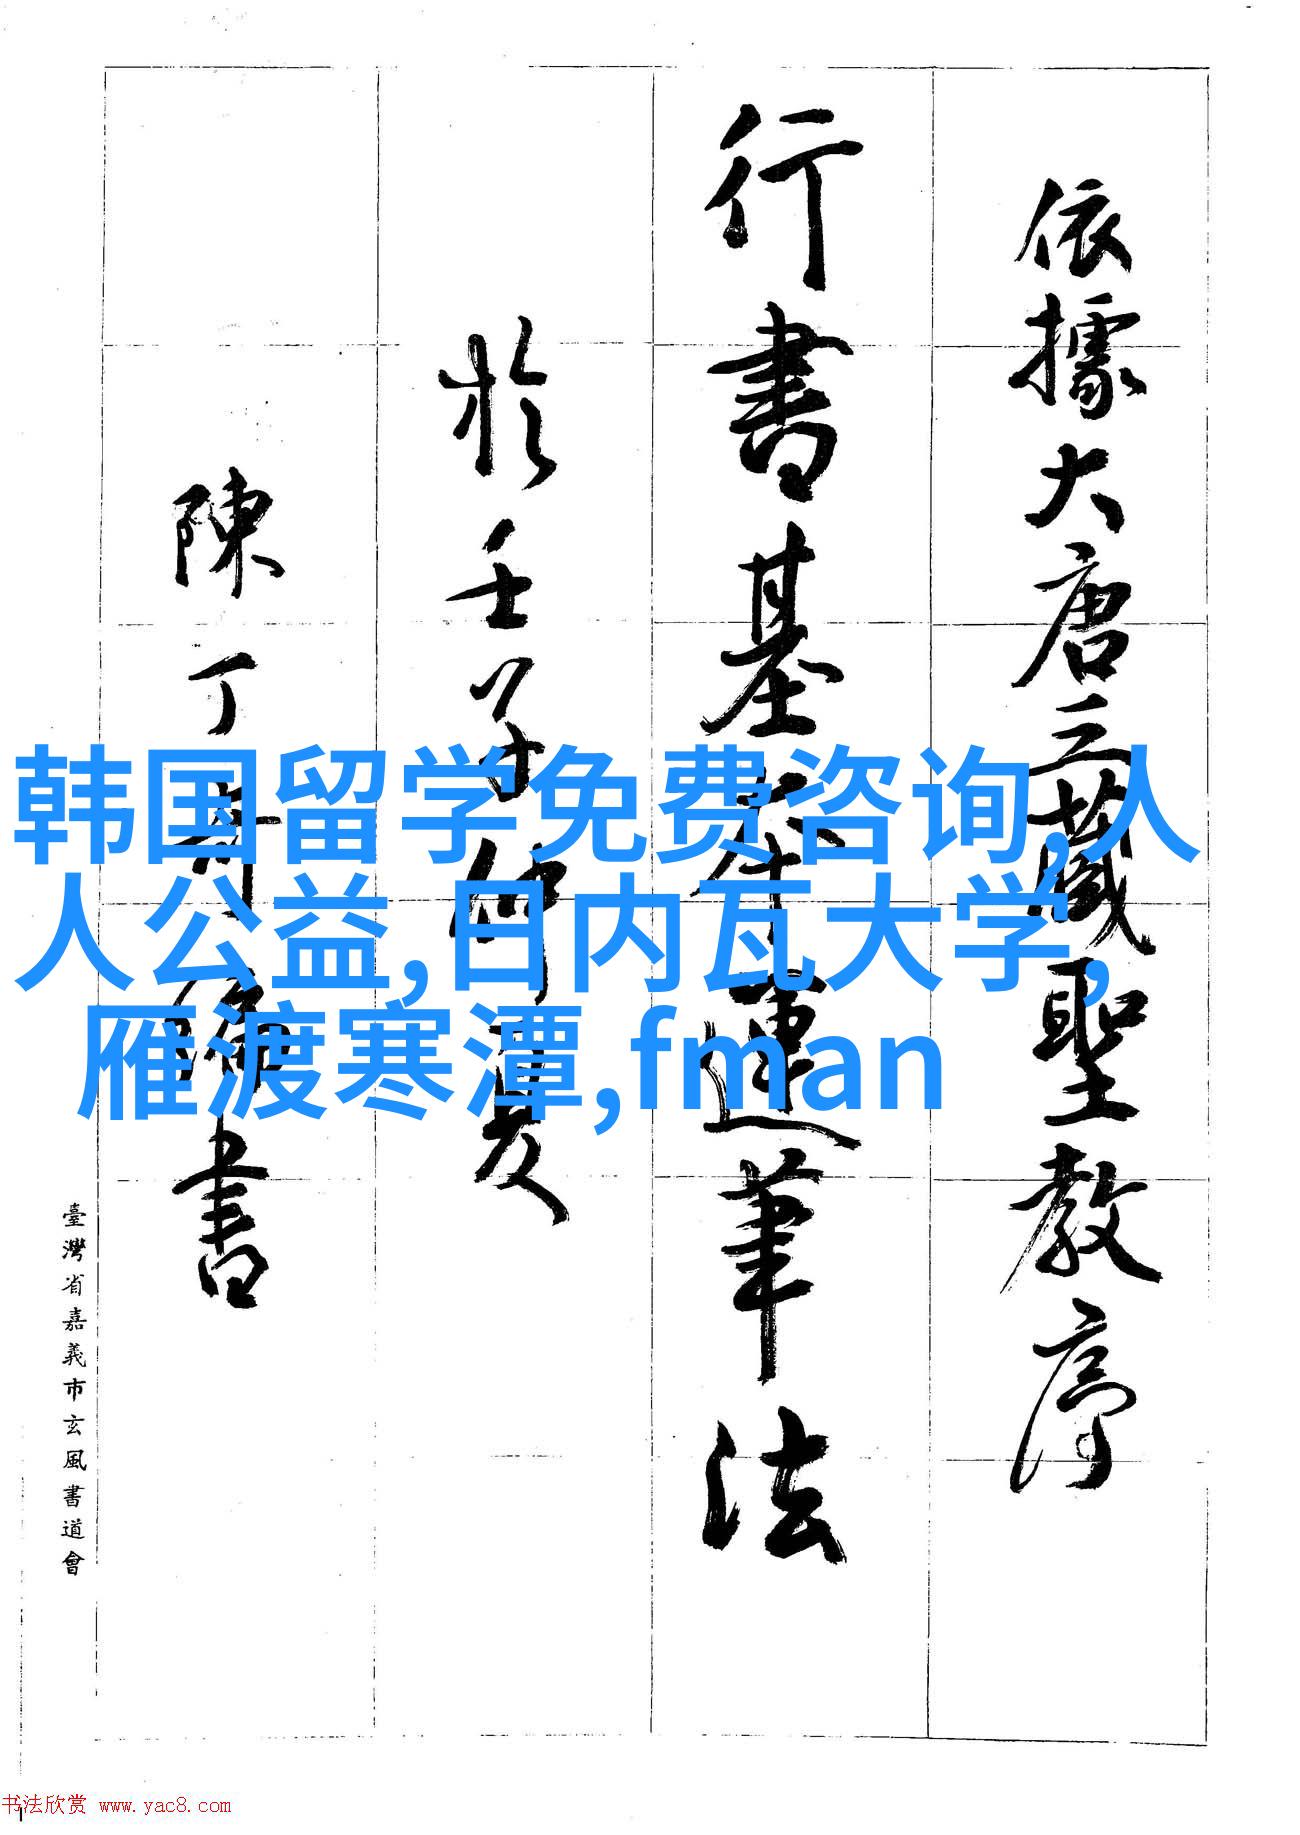 依據大唐三藏聖教序
行書基本運筆法
於壬子仲夏
陳丁奇編書
臺灣省嘉義市玄風書道會
韩国留学免费咨询,人
人公益,日内瓦大学,
雁渡寒潭,fman
书法欣赏 www.yac8.com